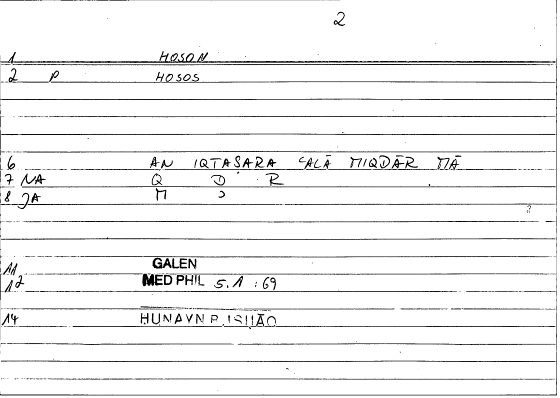 2
1 HOSON
2 P HOSOS
6 AN IQTAṢARA ʿALĀ MIQDĀR MĀ
7 NA Q D R
8 JA M
11 GALEN
12 MED PHIL 5.1 : 69
14 HUNAYN B ISḤĀQ